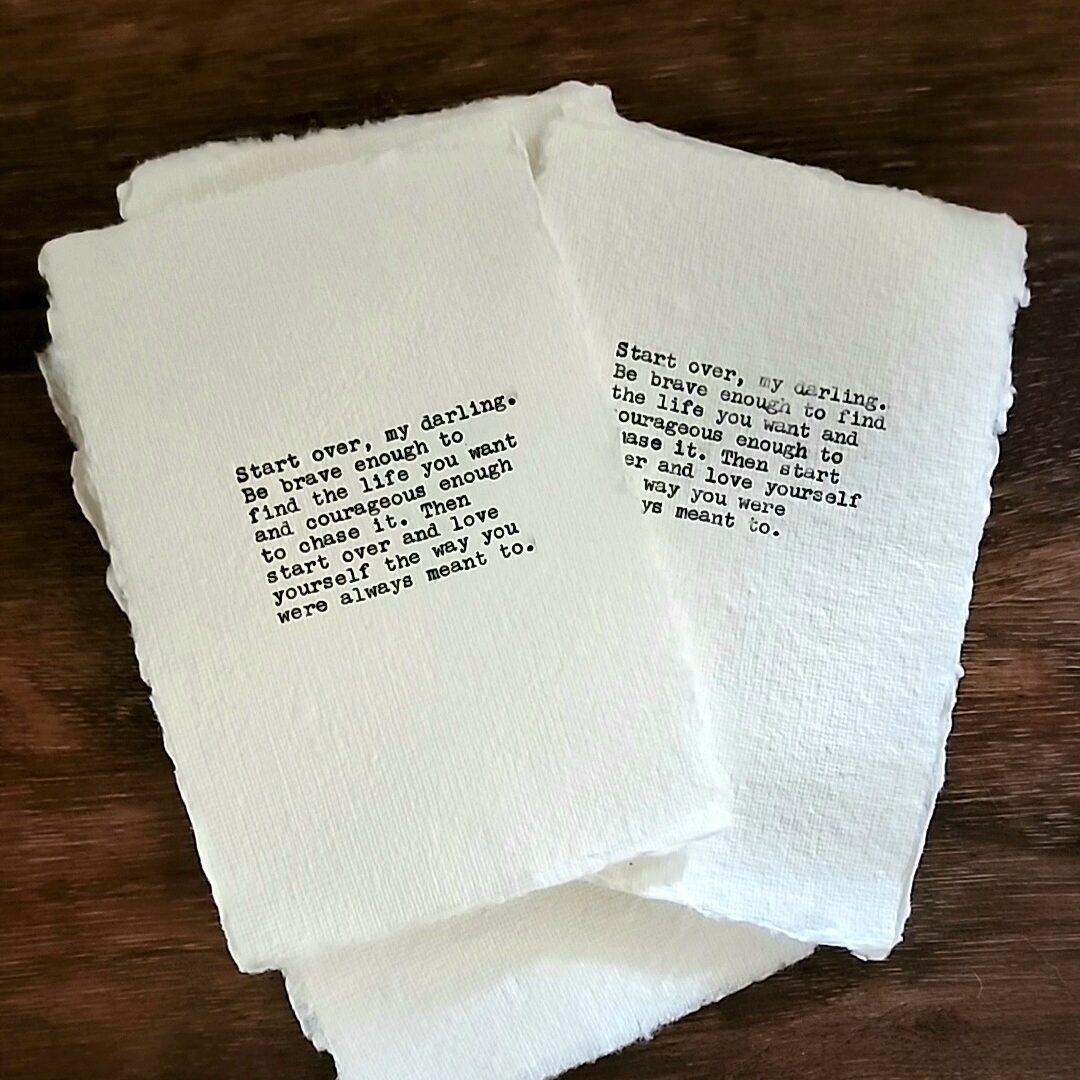 Start over, my darling.
Be brave enough to
find the life you want
and courageous enough
to chase it. Then
start over and love
yourself the way you
were always meant to.
Start over, my darling.
Be brave enough to find
the life you want and
ourageous enough to
ase it. Then start
er and love yourself
way you were
ys meant to.